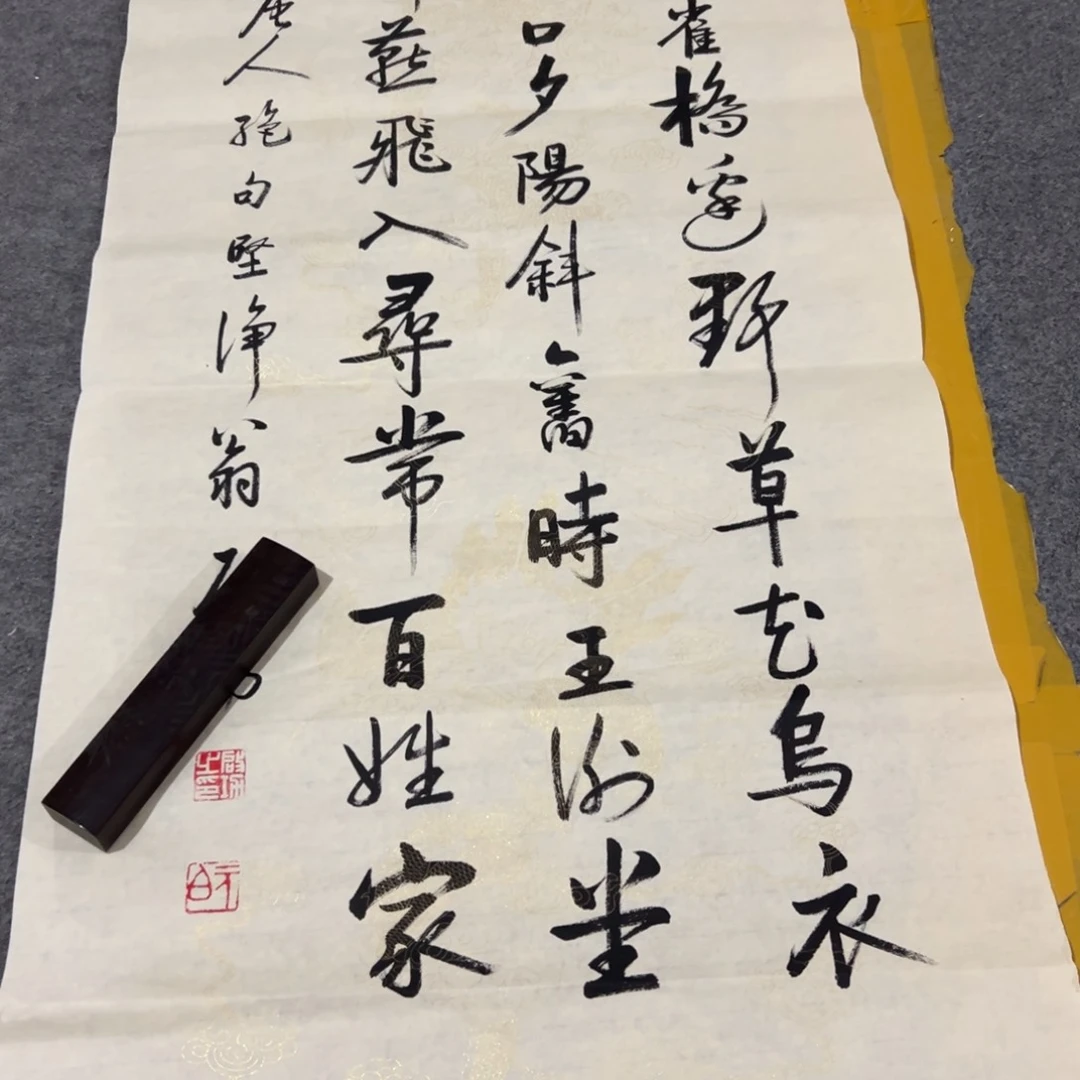 雀橋邊野草花烏衣
口夕陽斜舊時王謝堂
燕飛入尋常百姓家
唐人絕句堅淨翁
啟之印
元白